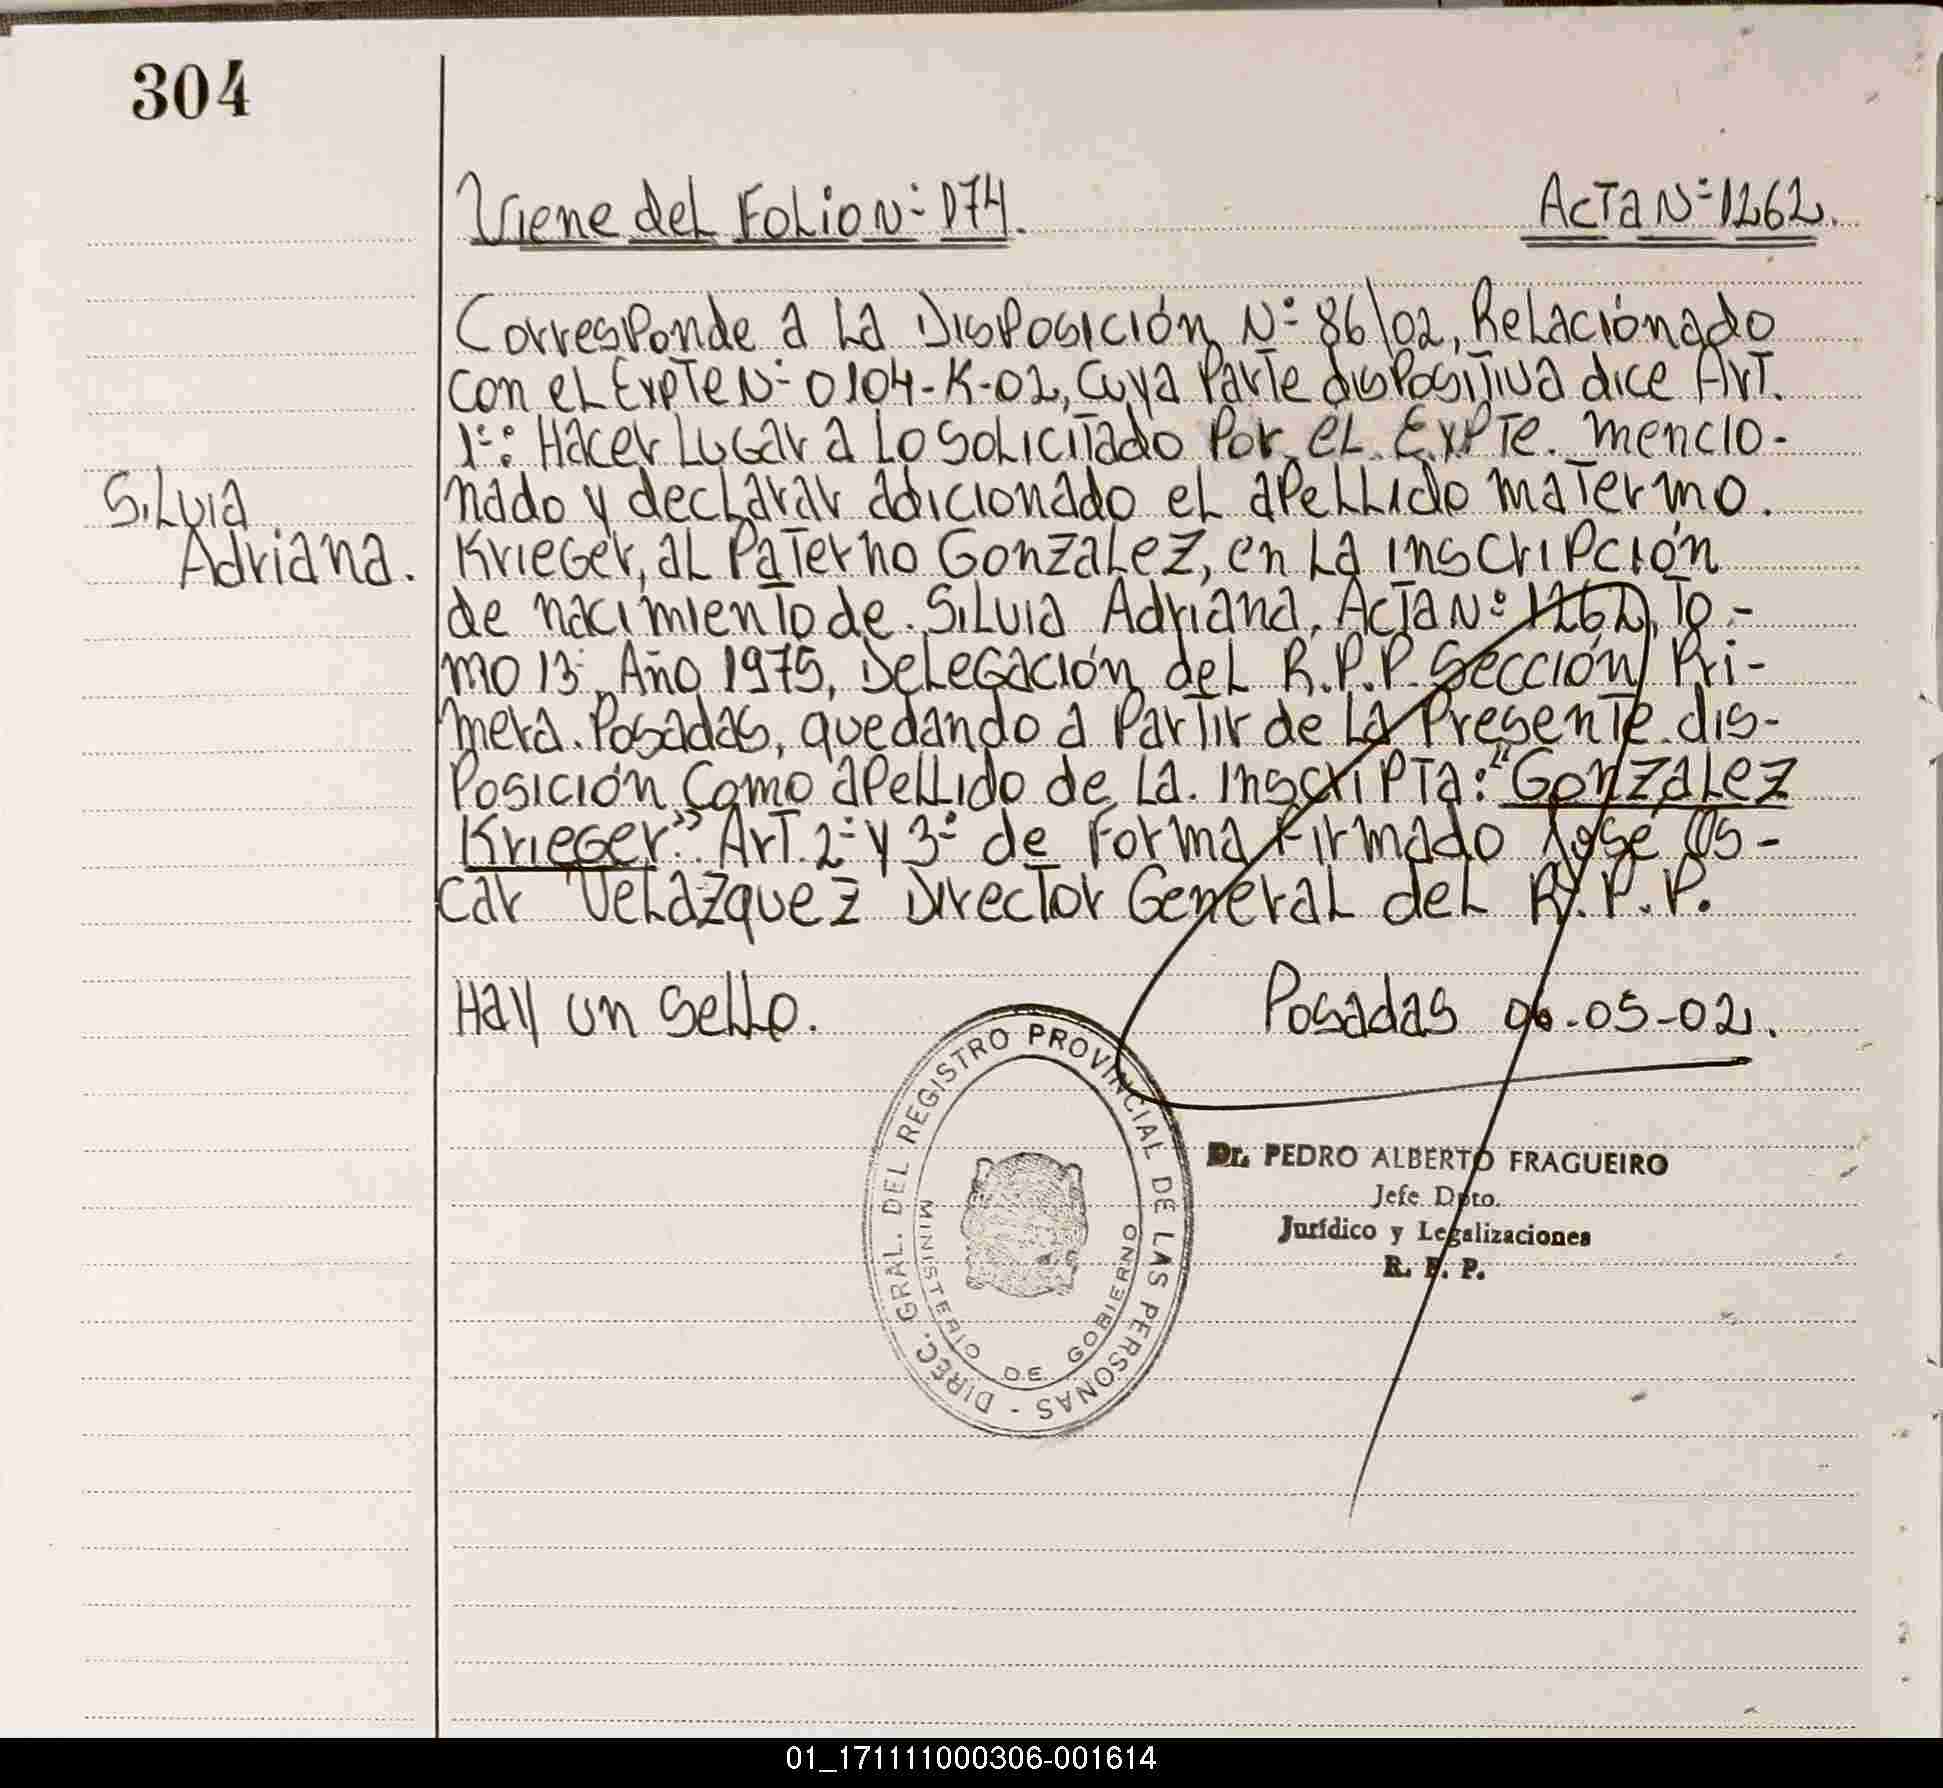 304
Viene del Folio N° 174. Acta N° 1262.
Corresponde a la Disposición N° 86/02, Relacionado
con el Expte N° 0104-K-02, cuya parte dispositiva dice Art.
1°: Hacer lugar a lo solicitado por el Expte. mencio-
nado y declarar adicionado el apellido matermo.
Silvia
Adriana.
Krieger, al Paterno Gonzalez, en la inscripción
de nacimiento de Silvia Adriana, Acta N° 1262, To-
mo 13° Año 1975, Delegación del R.P.P. Sección Pri-
mera. Posadas, quedando a partir de la presente dis-
posición como apellido de la inscripta: "Gonzalez
Krieger". Art. 2° y 3° de forma Firmado José Os-
car Velázquez Director General del R.P.P.
Hay un sello. Posadas 06-05-02.
DIREC. GRAL. DEL REGISTRO PROVINCIAL DE LAS PERSONAS -
MINISTERIO DE GOBIERNO
Dr. PEDRO ALBERTO FRAGUEIRO
Jefe Dpto.
Jurídico y Legalizaciones
R. P. P.
01_171111000306-001614